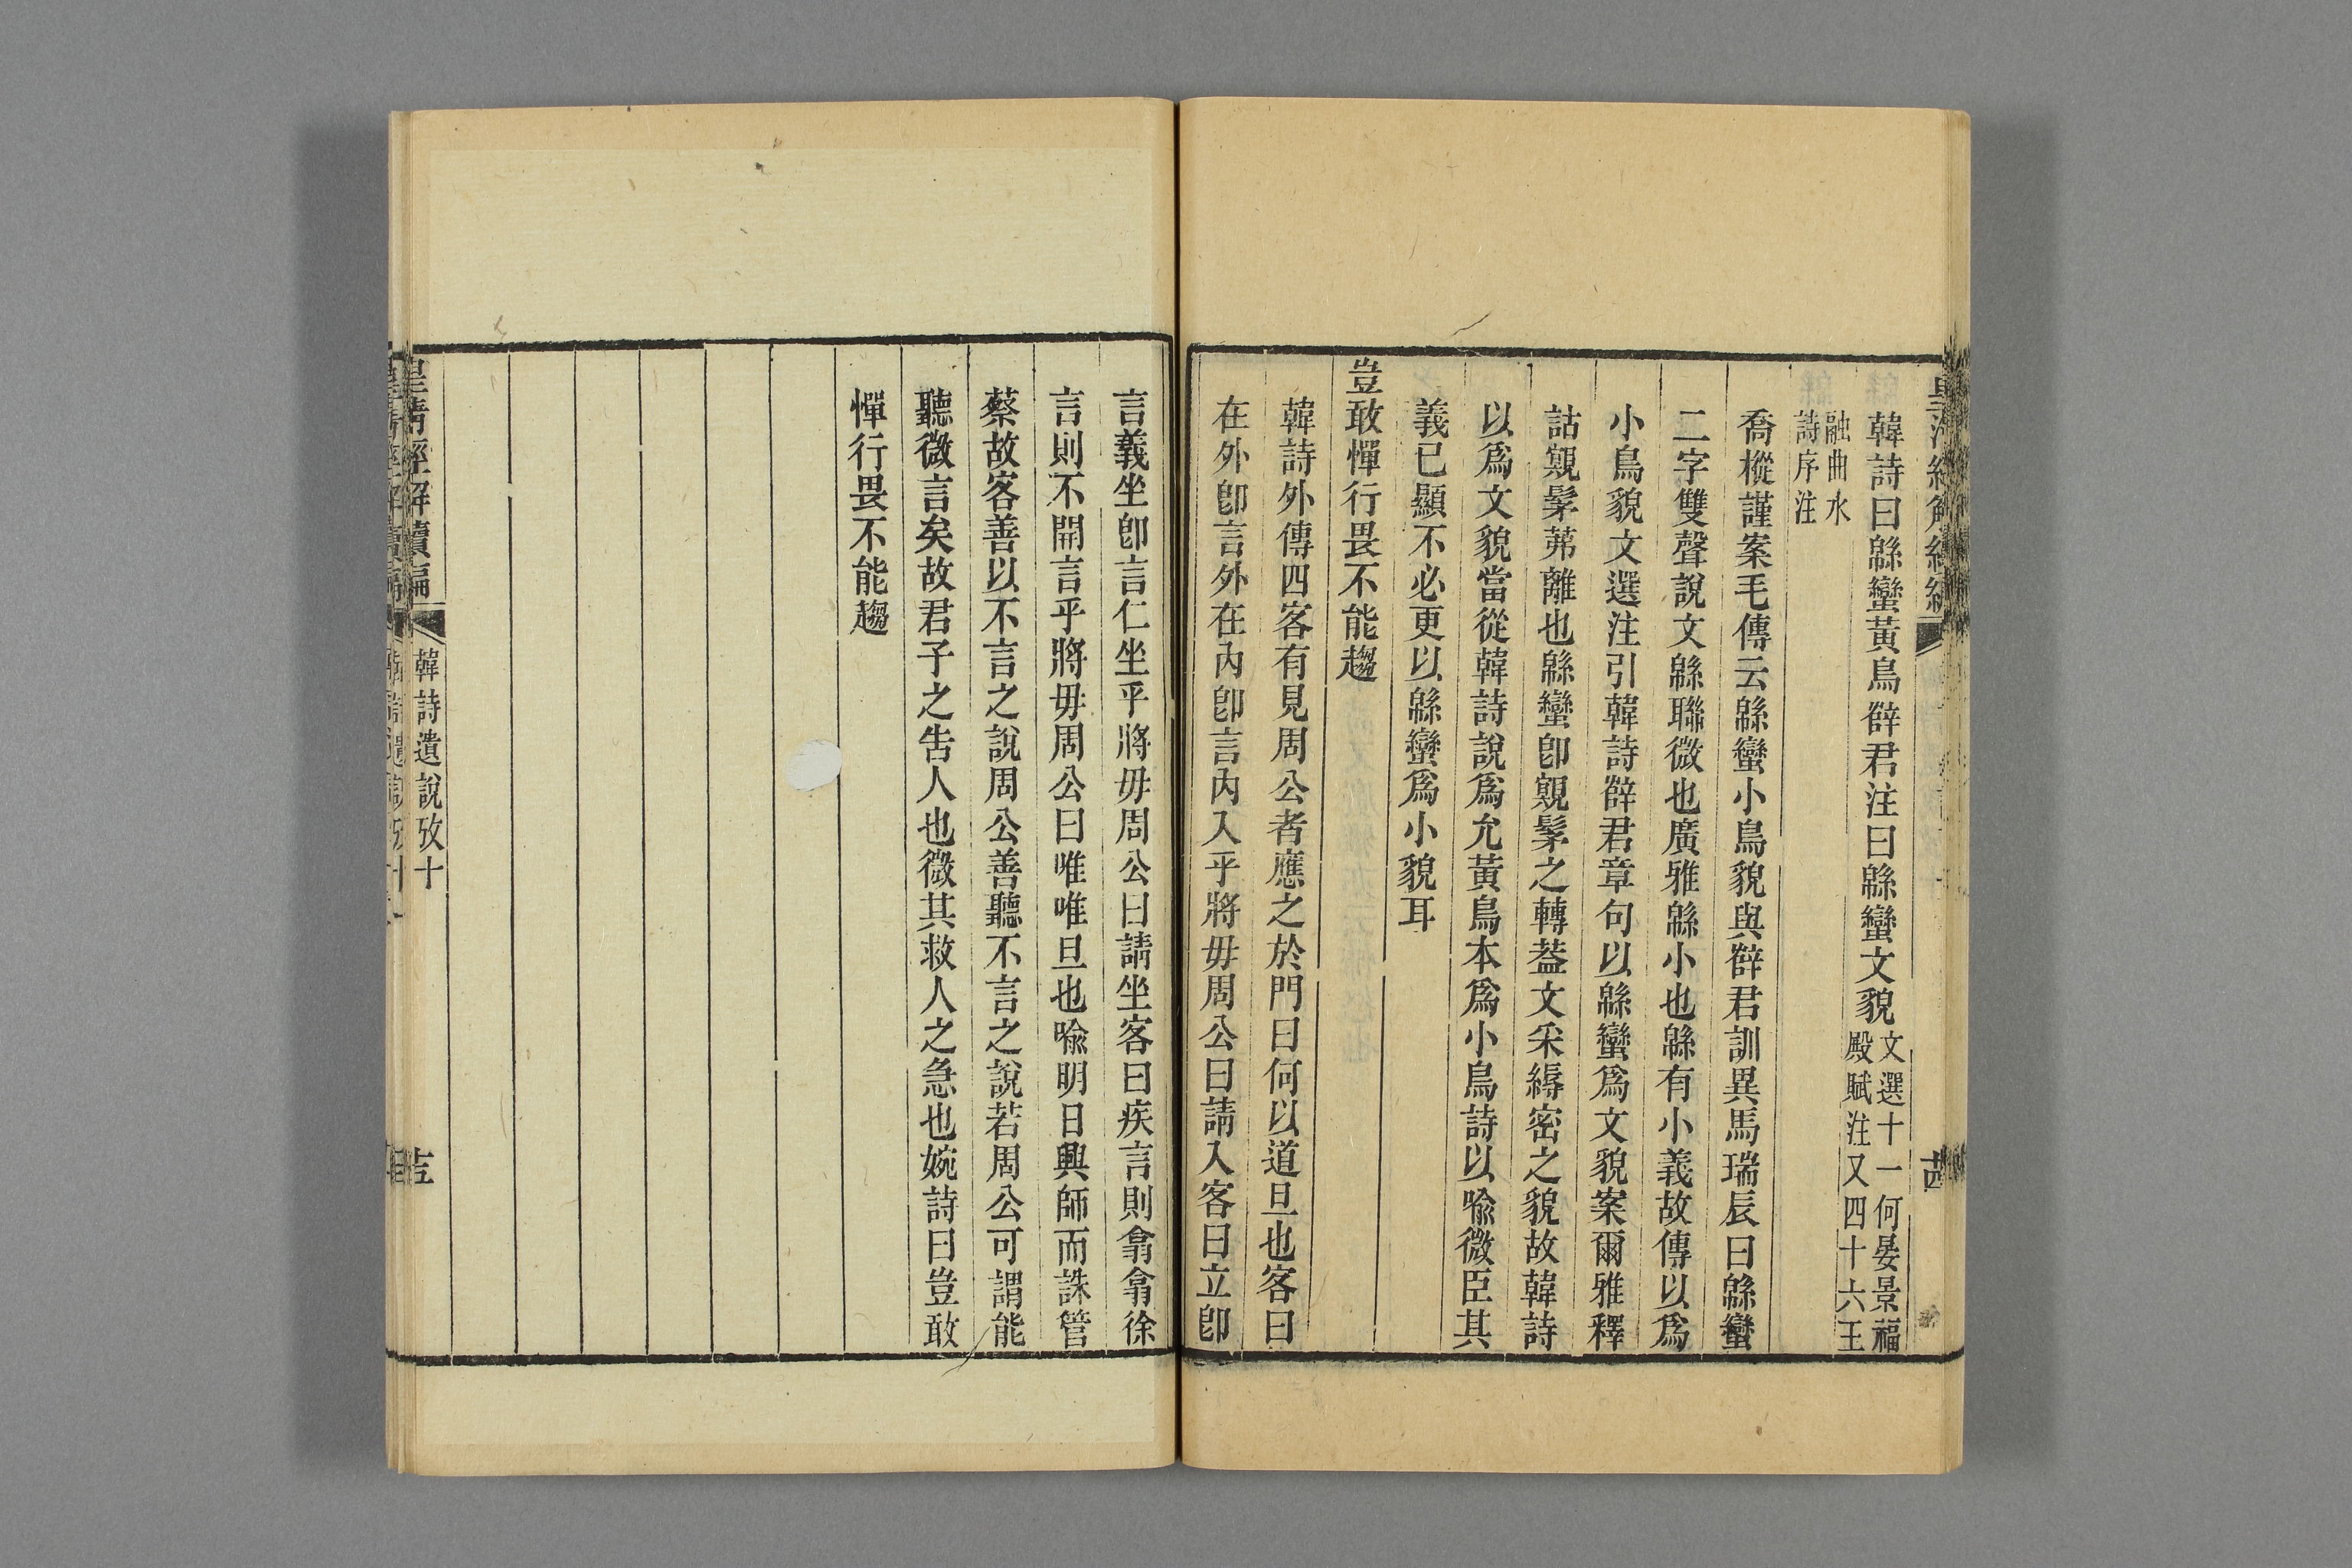 韓詩曰緜蠻黃鳥薛君注曰緜蠻文貌文選十一何晏景福
殿賦注又四十六王
融曲水
詩序注
喬樅謹案毛傳云緜蠻小鳥貌與薛君訓異馬瑞辰曰緜蠻
二字雙聲說文緜聯微也廣雅緜小也緜有小義故傳以爲
小鳥貌文選注引韓詩薛君章句以緜蠻爲文貌案爾雅釋
詁覭髳茀離也緜蠻卽覭髳之轉葢文采縟密之貌故韓詩
以爲文貌當從韓詩說爲允黃鳥本爲小鳥詩以喩微臣其
義已顯不必更以緜蠻爲小貌耳
豈敢憚行畏不能趨
韓詩外傳四客有見周公者應之於門曰何以道旦也客曰
在外卽言外在內卽言內入乎將毋周公曰請入客曰立卽
言義坐卽言仁坐乎將毋周公曰請坐客曰疾言則翕翕徐
言則不聞言乎將毋周公曰唯唯旦也喩明日興師而誅管
蔡故客善以不言之說周公善聽不言之說若周公可謂能
聽微言矣故君子之告人也微其救人之急也婉詩曰豈敢
憚行畏不能趨
皇淸經解續編
韓詩遺說攷十